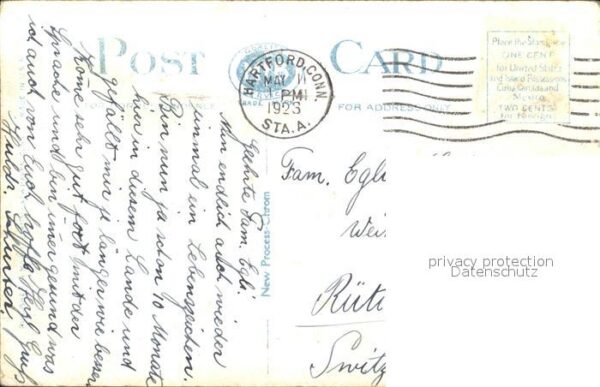 POST CARD
FOR ADDRESS ONLY
HARTFORD, CONN.
MAY 11
PM
1923
STA. A.
Place the Stamp here
ONE CENT
for United States
and Island Possessions
Cuba, Canada and
Mexico
TWO CENTS
for Foreign
New Process-Chrom
Geehrte Fam. Egli.
endlich auch wieder
einmal ein Lebenszeichen.
Bin nun ja schon 10 Monate
hier in diesem Lande und
gefällt mir je länger wie besser
Kome sehr gut fort mit der
Sprache und bin imer gesund was
ich auch von Euch hoffe Herzl Gruß
Fam. Egli
Wei
Rüti
Switz
privacy protection
Datenschutz